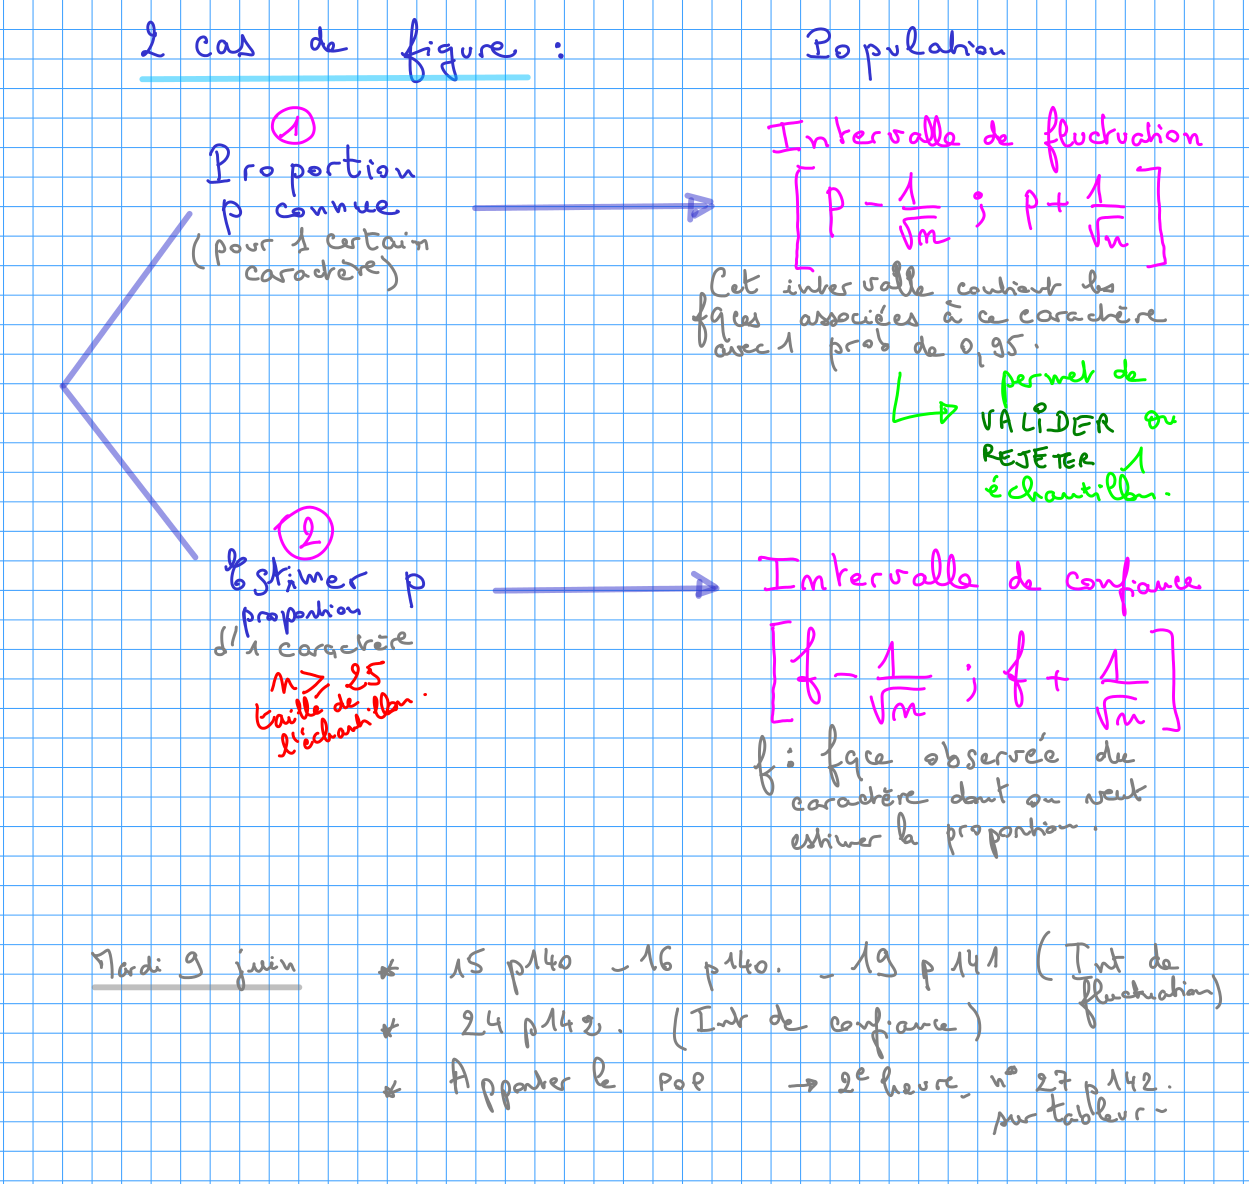 2 cas de figure :
Population
1
Proportion
p connue
(pour 1 certain
caractère)
Intervalle de fluctuation
[p - 1/√n ; p + 1/√n]
Cet intervalle contient les
fqces associées à ce caractère
avec 1 prob de 0,95.
permet de
VALIDER ou
REJETER 1
échantillon.
2
Estimer p
proportion
d'1 caractère
n ⩾ 25
taille de
l'échantillon.
Intervalle de confiance
[f - 1/√n ; f + 1/√n]
f : fqce observée du
caractère dont on veut
estimer la proportion.
Mardi 9 juin
* 15 p140 - 16 p140. - 19 p 141 (Int de
fluctuation)
* 24 p142. (Int de confiance)
* Apporter le POP → 2e heure n° 27 p142.
sur tableur -